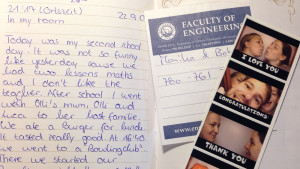 21:17 (Ortszeit)
In my room
22.9.0
Today was my second school
day. It was not so funny
like yesterday cause we
had two lessons maths
and I don't like the
teacher. After school I went
with Olli's mum, Olli and
to her host familie.
We ate a burger for lunch.
It tasted really good. At 16:40
we went to a Bowlingclub.
There we started our
FACULTY OF
ENGINEERING
760-761
I LOVE YOU
CONGRATULATIONS
THANK YOU